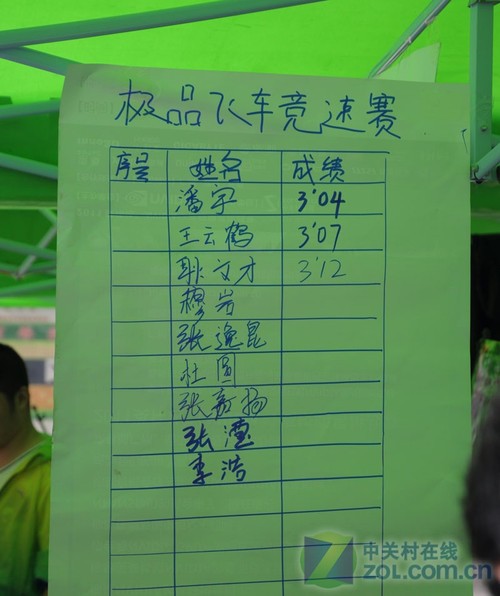 极品飞车竞速赛
序号 姓名 成绩
潘宇 3'04
王云鹤 3'07
耿文才 3'12
穆岩
张逸昆
杜圆
张嘉扬
张滢
李浩
中关村在线
ZOL.COM.CN